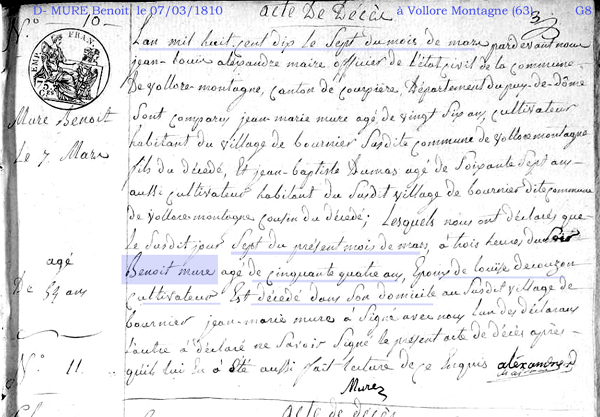 D- MURE Benoit le 07/03/1810 à Vollore Montagne (63) G8
N° 10 acte De Décès
3
EMP. FRAN.
Lan mil huit cent dix le Sept du mois de mars pardevant nous
jean-louis alexandre maire officier de l'état civil de la commune
De vollore-montagne, canton de courpière, Département du puy-de-dôme
Sont comparus jean-marie mure agé de vingt Six ans, cultivateur
Mure Benoit
habitant du village de bournier Susdite commune de vollore montagne
Le 7 Mars
fils du décédé, Et jean-baptiste Dumas agé de Soixante Sept ans
aussi cultivateur habitant du Susdit village de bournier dite commune
de vollore-montagne cousin du décédé; Lesquels nous ont déclarés que
le Susdit jour Sept du présent mois de mars, à trois heures du Soir
agé
Benoit mure agé de cinquante quatre ans, Epoux de louise
De 54 ans
cultivateur Est décédé dans Son domicile au Susdit village de
bournier jean-marie mure à Signé avec nous l'un des déclarans
l'autre à déclaré ne Savoir Signé le présent acte de décès après
N° 11
qu'il lui En a été aussi fait lecture de ce Requis alexandre
Mure
acte de décès